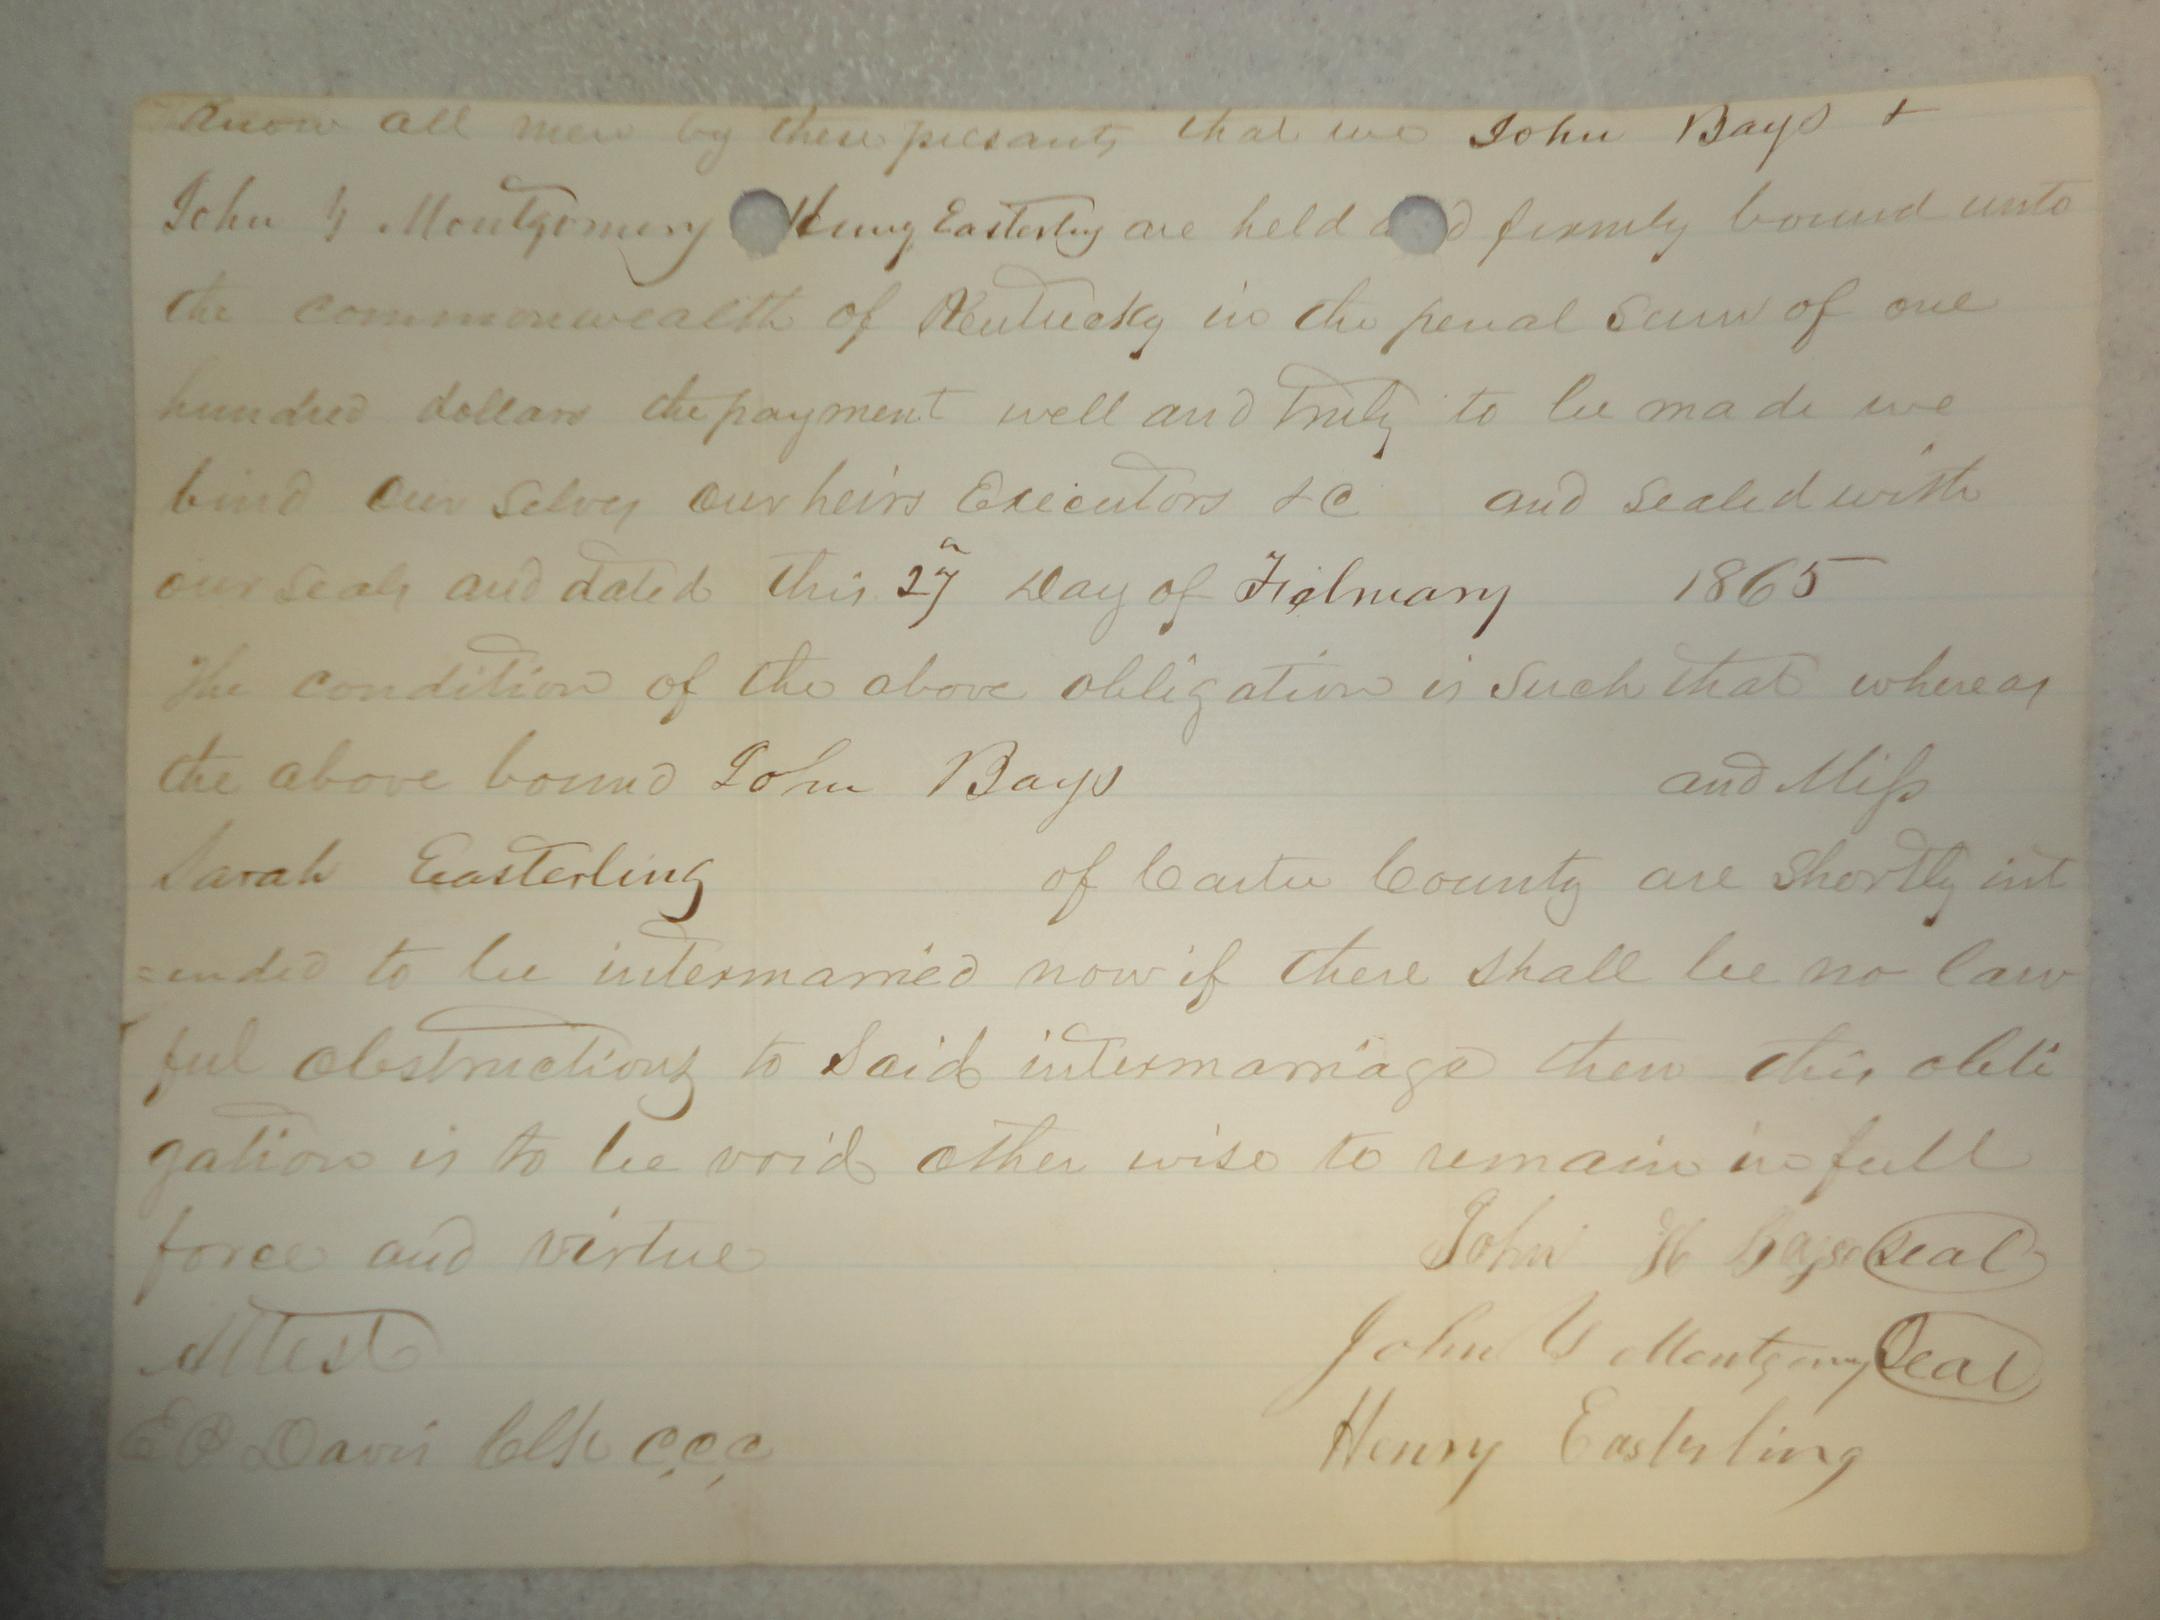 Know all men by these presants that we John Bays +
John G Montgomery Henry Easterling are held and firmly bound unto
the commonwealth of Kentucky in the penal sum of one
hundred dollars the payment well and truly to be made we
bind our selves our heirs Executors &C and sealed with
our seals and dated this 27 Day of Febuary 1865
The condition of the above obligation is such that whereas
the above bound John Bays and Miss
Sarah Easterling of Carter County are shortly int
=ended to be intermarried now if there shall be no law
ful obstructions to said intermarriage then this obli
gation is to be void other wise to remain in full
force and virtue John H Bays seal
Attest John G Montgomery Seal
Davis Clk C.C.C Henry Easterling